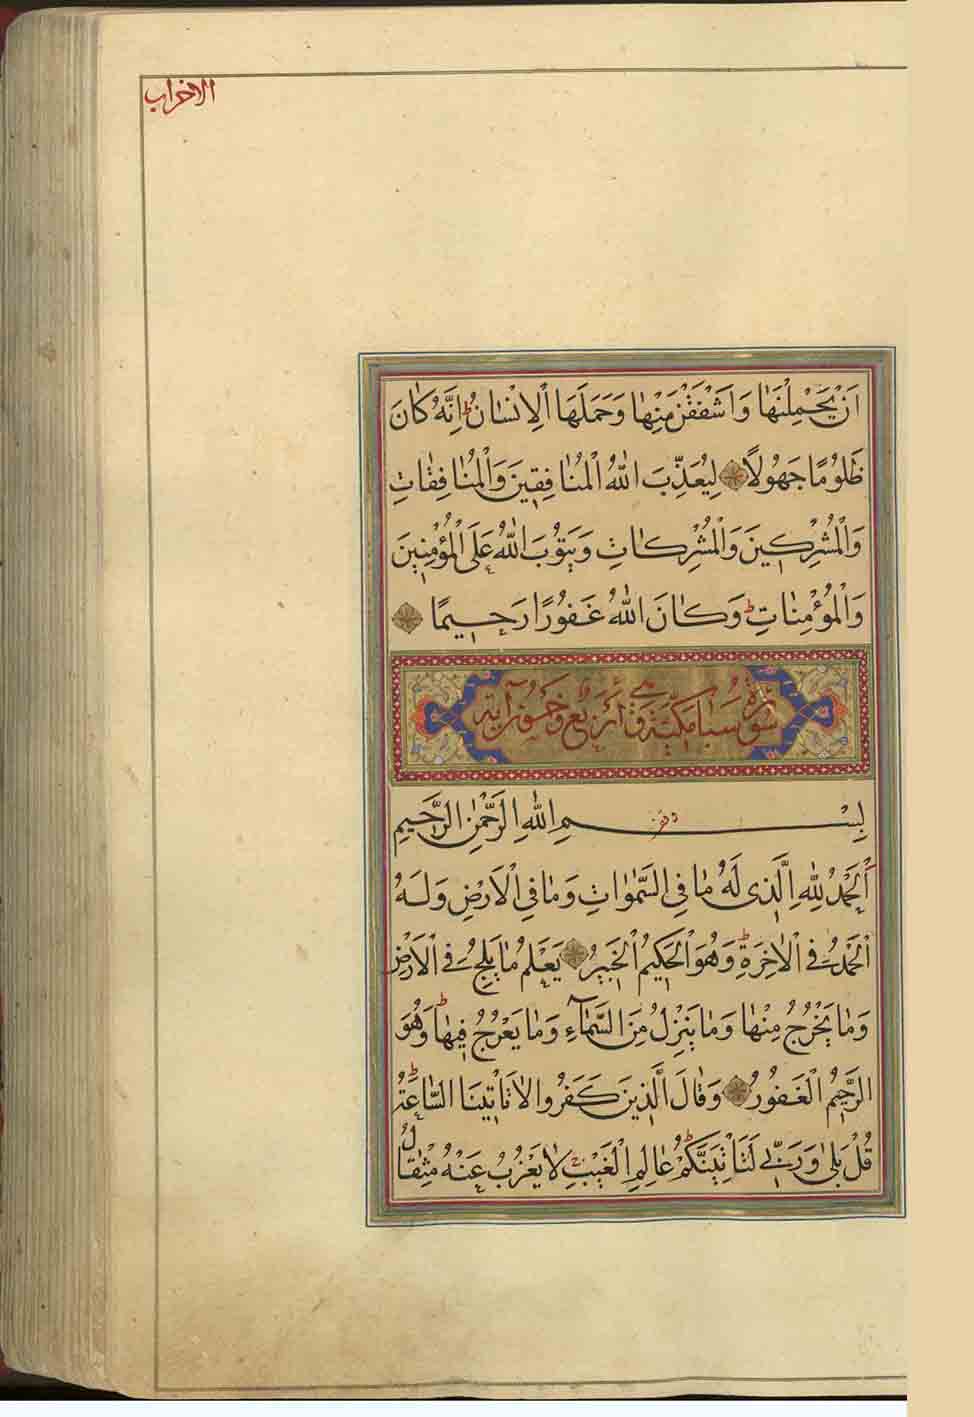 الاحزاب
اَنْ يَحْمِلْنَهٰا وَاَشْفَقْنَ مِنْهٰا وَحَمَلَهَا الْاِنْسٰانُ ط اِنَّهُ كٰانَ
ظَلُومًا جَهُولًا لِيُعَذِّبَ اللّٰهُ الْمُنٰافِقِينَ وَالْمُنٰافِقٰاتِ
وَالْمُشْرِكِينَ وَالْمُشْرِكٰاتِ وَيَتُوبَ اللّٰهُ عَلَى الْمُؤْمِنِينَ
وَالْمُؤْمِنٰاتِ ط وَكٰانَ اللّٰهُ غَفُورًا رَحِيمًا
سورة سبا مكية وهي اربع وخمسون آية
بِسْمِ اللّٰهِ الرَّحْمٰنِ الرَّحِيمِ
اَلْحَمْدُ لِلّٰهِ الَّذِى لَهُ مٰا فِى السَّمٰوٰاتِ وَمٰا فِى الْاَرْضِ وَلَهُ
الْحَمْدُ فِى الْاٰخِرَةِ ط وَهُوَ الْحَكِيمُ الْخَبِيرُ يَعْلَمُ مٰا يَلِجُ فِى الْاَرْضِ
وَمٰا يَخْرُجُ مِنْهٰا وَمٰا يَنْزِلُ مِنَ السَّمٰآءِ وَمٰا يَعْرُجُ فِيهٰا ط وَهُوَ
الرَّحِيمُ الْغَفُورُ وَقٰالَ الَّذِينَ كَفَرُوا لٰا تَاْتِينَا السّٰاعَةُ ط
قُلْ بَلٰى وَرَبِّى لَتَاْتِيَنَّكُمْ ط عٰالِمِ الْغَيْبِ لٰا يَعْزُبُ عَنْهُ مِثْقٰالُ